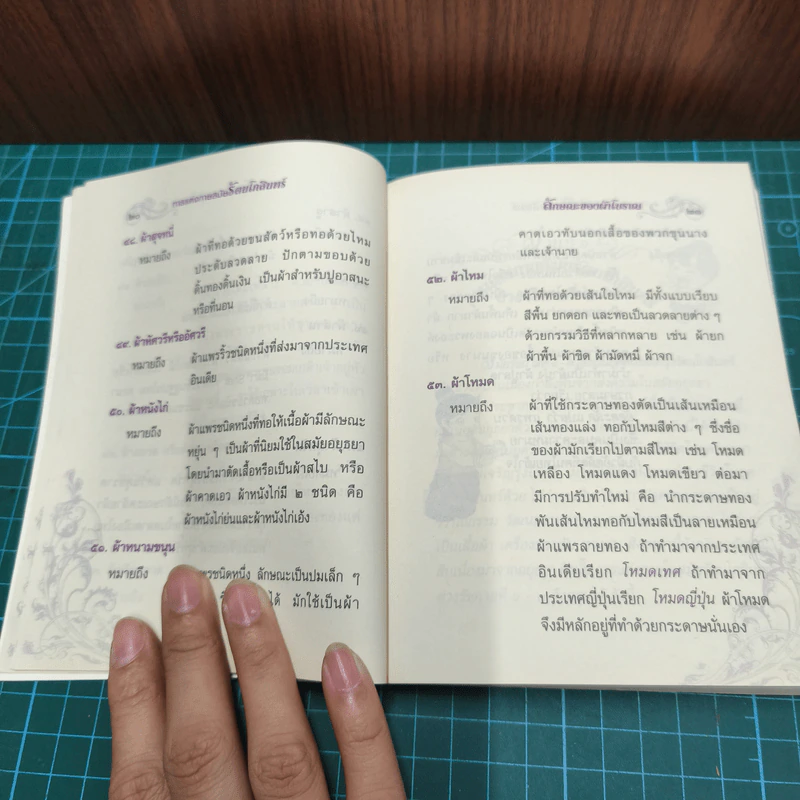 ๒๐ การแต่งกายสมัยรัตนโกสินทร์
๔๘. ผ้าสุจหนี่
หมายถึง ผ้าที่ทอด้วยขนสัตว์หรือทอด้วยไหม
ประดับลวดลาย ปักตามขอบด้วย
ดิ้นทองดิ้นเงิน เป็นผ้าสำหรับปูอาสนะ
หรือที่นอน
๔๙. ผ้าหัศวรีหรืออัศวรี
หมายถึง ผ้าแพรริ้วชนิดหนึ่งที่ส่งมาจากประเทศ
อินเดีย
๕๐. ผ้าหนังไก่
หมายถึง ผ้าแพรชนิดหนึ่งที่ทอให้เนื้อผ้ามีลักษณะ
หยุ่น ๆ เป็นผ้าที่นิยมใช้ในสมัยอยุธยา
โดยนำมาตัดเสื้อหรือเป็นผ้าสไบ หรือ
ผ้าคาดเอว ผ้าหนังไก่มี ๒ ชนิด คือ
ผ้าหนังไก่ย่นและผ้าหนังไก่เอ้ง
๕๑. ผ้าหนามขนุน
หมายถึง แพรชนิดหนึ่ง ลักษณะเป็นปมเล็ก ๆ
ได้ มักใช้เป็นผ้า
ลักษณะของผ้าโบราณ
คาดเอวทับนอกเสื้อของพวกขุนนาง
และเจ้านาย
๕๒. ผ้าไหม
หมายถึง ผ้าที่ทอด้วยเส้นใยไหม มีทั้งแบบเรียบ
สีพื้น ยกดอก และทอเป็นลวดลายต่าง ๆ
ด้วยกรรมวิธีที่หลากหลาย เช่น ผ้ายก
ผ้าพื้น ผ้าขิด ผ้ามัดหมี่ ผ้าจก
๕๓. ผ้าโหมด
หมายถึง ผ้าที่ใช้กระดาษทองตัดเป็นเส้นเหมือน
เส้นทองแล่ง ทอกับไหมสีต่าง ๆ ซึ่งชื่อ
ของผ้ามักเรียกไปตามสีไหม เช่น โหมด
เหลือง โหมดแดง โหมดเขียว ต่อมา
มีการปรับทำใหม่ คือ นำกระดาษทอง
พันเส้นไหมทอกับไหมสีเป็นลายเหมือน
ผ้าแพรลายทอง ถ้าทำมาจากประเทศ
อินเดียเรียก โหมดเทศ ถ้าทำมาจาก
ประเทศญี่ปุ่นเรียก โหมดญี่ปุ่น ผ้าโหมด
จึงมีหลักอยู่ที่ทำด้วยกระดาษนั่นเอง